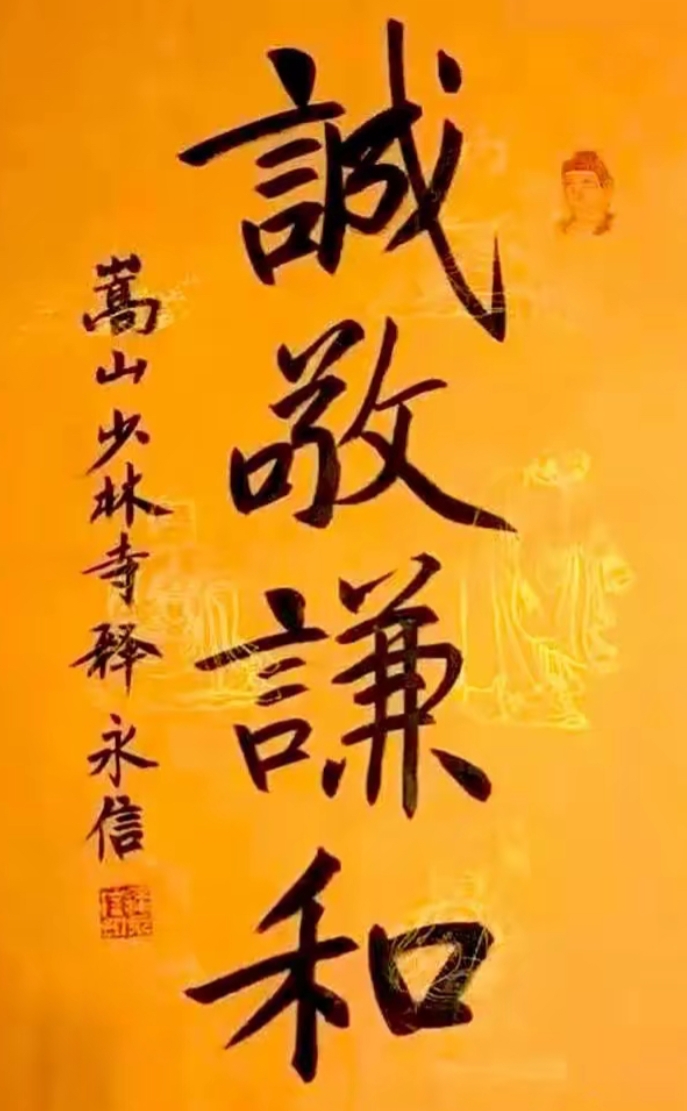 誠敬謙和
嵩山少林寺释永信